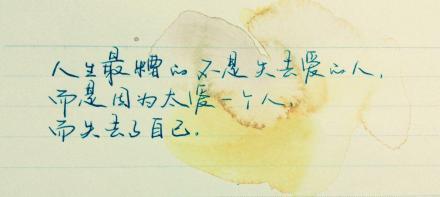 人生最糟的不是失去爱的人，
而是因为太爱一个人，
而失去了自己．